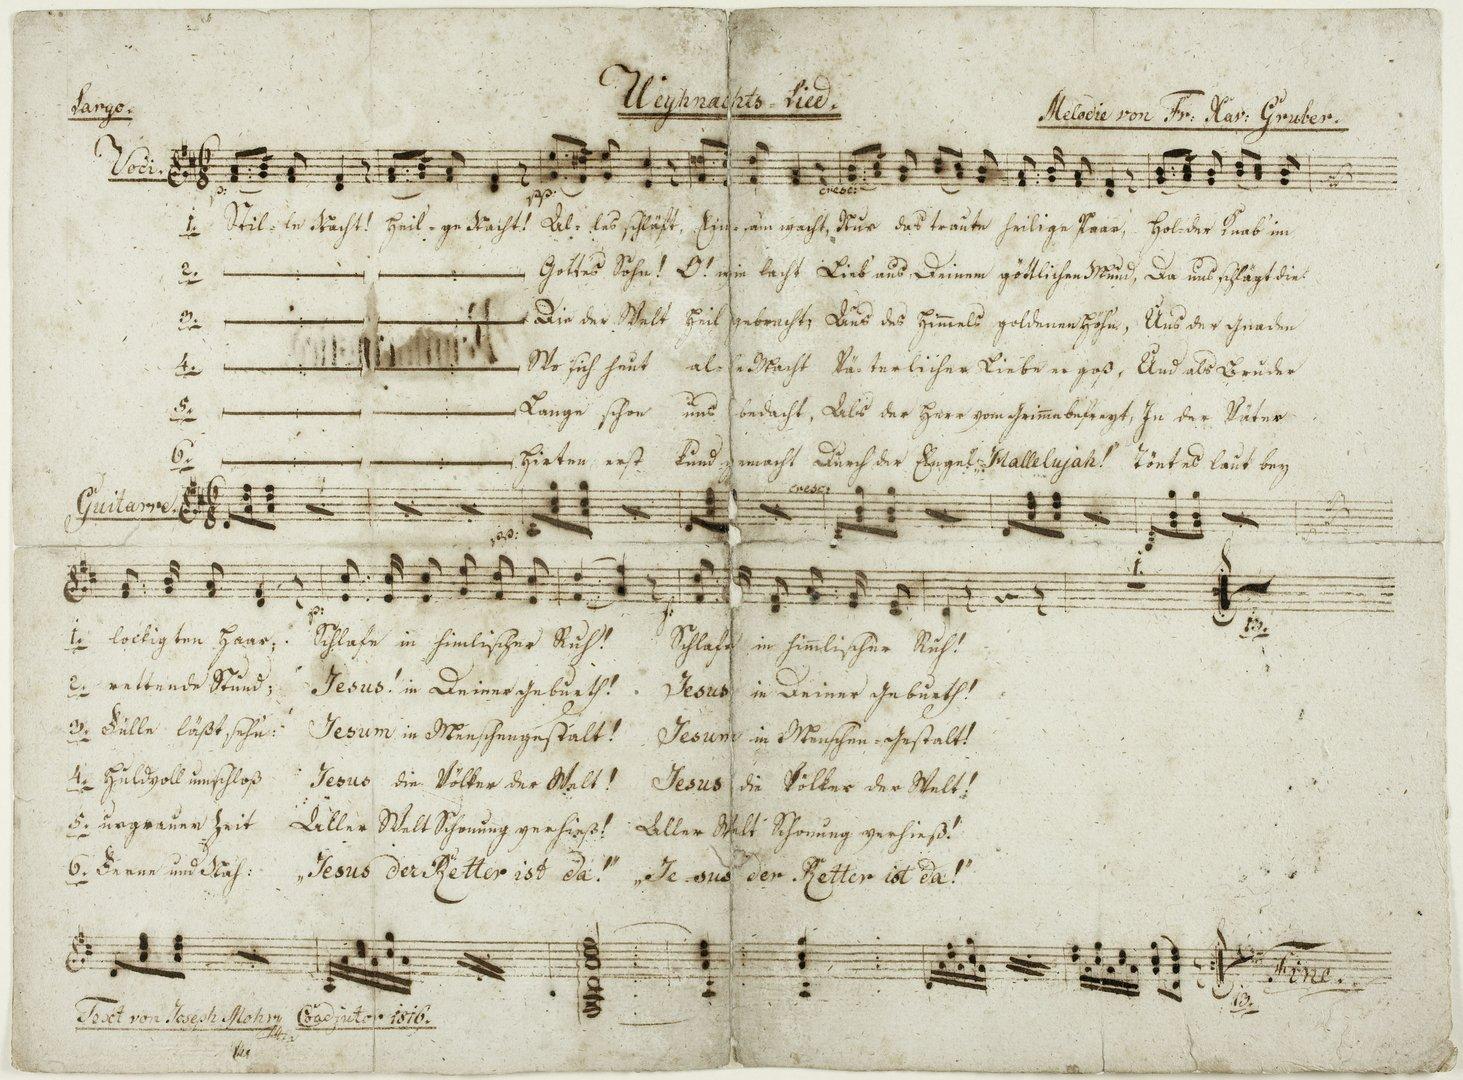 Weyhnachts-Lied.
Largo.
Melodie von Fr: Xav: Gruber.
Voci.
pp: cresc:
1. Stil-le Nacht! Heil-ge Nacht! Al-les schläft, Ein-sam wacht, Nur das traute heilige Paar, Hol-der Knab' im
2. Gottes Sohn! O! wie lacht Lieb' aus Deinem göttlichen Mund, Da uns schlägt die
3. Die der Welt Heil gebracht; Aus des Him̄els goldenen Höhn, Uns der Gnaden
4. Wo sich heut al-le Macht Vä-terlicher Liebe ergoß, Und als Bruder
5. Lange schon uns bedacht, Als der Herr vom Grim̄e befreyt, In der Väter
6. Hirten erst kund gemacht Durch der Engel „Hallelujah!" Tönt es laut bey
Guitarre.
pp: cresc:
p: f:
1. lockigten Haar; Schlafe in him̄lischer Ruh! Schlafe in him̄lischer Ruh!
2. rettende Stund; Jesus! in Deiner Geburth! Jesus in Deiner Geburth!
3. Fülle läßt sehn: Jesum in Menschengestalt! Jesum in Menschen-Gestalt!
4. Huldvoll umschloß Jesus die Völker der Welt! Jesus die Völker der Welt!
5. urgrauer Zeit Aller Welt Schonung verhieß! Aller Welt Schonung verhieß!
6. Ferne und Nah: „Jesus der Retter ist da!" „Je-sus der Retter ist da!"
Fine.
Text von Joseph Mohr Coadjutor 1816.